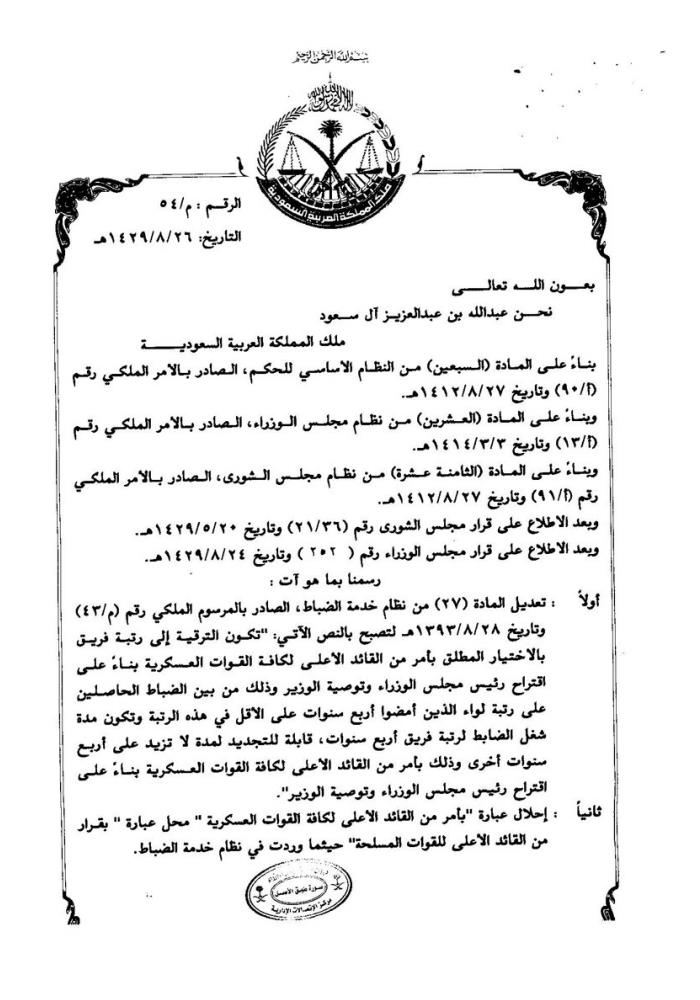 بسم الله الرحمن الرحيم
لا إله إلا الله محمد رسول الله
ملك المملكة العربية السعودية
الرقم : م/٥٤
التاريخ: ١٤٢٩/٨/٢٦هـ
بعـــون اللـــه تعالـــى
نحــن عبدالله بن عبدالعزيز آل سعود
ملك المملكة العربية السعوديـــة
بناءً على المادة (السبعين) من النظام الأساسي للحكم، الصادر بالأمر الملكي رقم
(أ/٩٠) وتاريخ ١٤١٢/٨/٢٧هـ.
وبناءً على المادة (العشرين) من نظام مجلس الوزراء، الصادر بالأمر الملكي رقم
(أ/١٣) وتاريخ ١٤١٤/٣/٣هـ.
وبناءً على المادة (الثامنة عشرة) من نظام مجلس الشورى، الصادر بالأمر الملكي
رقم (أ/٩١) وتاريخ ١٤١٢/٨/٢٧هـ.
وبعد الاطلاع على قرار مجلس الشورى رقم (٢١/٣٦) وتاريخ ١٤٢٩/٥/٢٠هـ.
وبعد الاطلاع على قرار مجلس الوزراء رقم ( ٢٥٢ ) وتاريخ ١٤٢٩/٨/٢٤هـ.
رسمنا بما هو آت :
أولاً : تعديل المادة (٢٧) من نظام خدمة الضباط، الصادر بالمرسوم الملكي رقم (م/٤٣)
وتاريخ ١٣٩٣/٨/٢٨هـ لتصبح بالنص الآتي: "تكون الترقية إلى رتبة فريق
بالاختيار المطلق بأمر من القائد الأعلى لكافة القوات العسكرية بناءً على
اقتراح رئيس مجلس الوزراء وتوصية الوزير وذلك من بين الضباط الحاصلين
على رتبة لواء الذين أمضوا أربع سنوات على الأقل في هذه الرتبة وتكون مدة
شغل الضابط لرتبة فريق أربع سنوات، قابلة للتجديد لمدة لا تزيد على أربع
سنوات أخرى وذلك بأمر من القائد الأعلى لكافة القوات العسكرية بناءً على
اقتراح رئيس مجلس الوزراء وتوصية الوزير".
ثانياً : إحلال عبارة "بأمر من القائد الأعلى لكافة القوات العسكرية " محل عبارة " بقرار
من القائد الأعلى للقوات المسلحة" حيثما وردت في نظام خدمة الضباط.
صورة طبق الأصل
مركز الاتصالات الإدارية